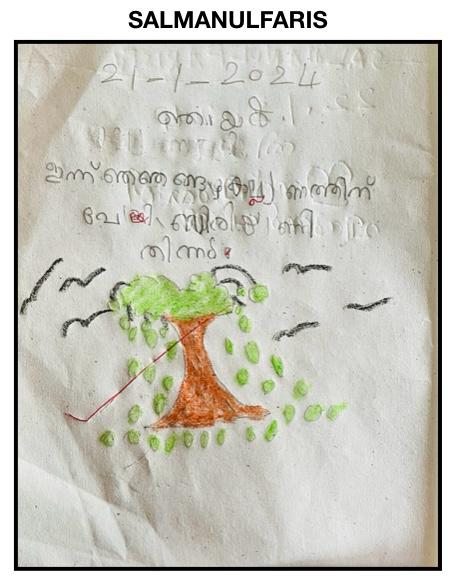 SALMANULFARIS
21-1-2024
ഞായർ
ഇന്ന് ഞങ്ങൾ കല്ല്യാണത്തിന്
പോയി ബിരിയാണി
തിന്നു